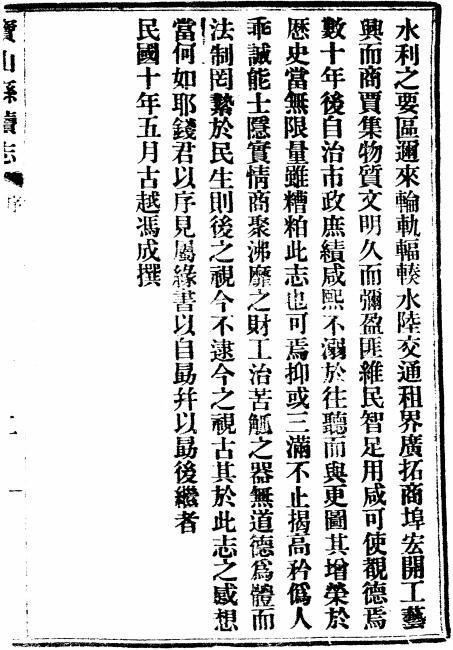 水利之要區邇來輪軌輻輳水陸交通租界廣拓商埠宏開工藝
興而商賈集物質文明久而彌盈匪維民智足用咸可使覩德焉
數十年後自治市政庶績咸熙不溺於往聽而與更圖其增榮於
歷史當無限量雖糟粕此志也可焉抑或三滿不止揭高矜僞人
乖誠能士隱實情商聚沸靡之財工治苦觚之器無道德爲體而
法制罔繫於民生則後之視今不逮今之視古其於此志之感想
當何如耶錢君以序見屬緣書以自勗幷以勗後繼者
民國十年五月古越馮成撰
寶山縣續志
序
二